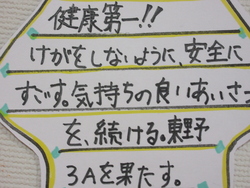 健康第一!!
けがをしないように、安全に
すごす。気持ちの良いあいさつ
を、続ける。東野
3Aを果たす。